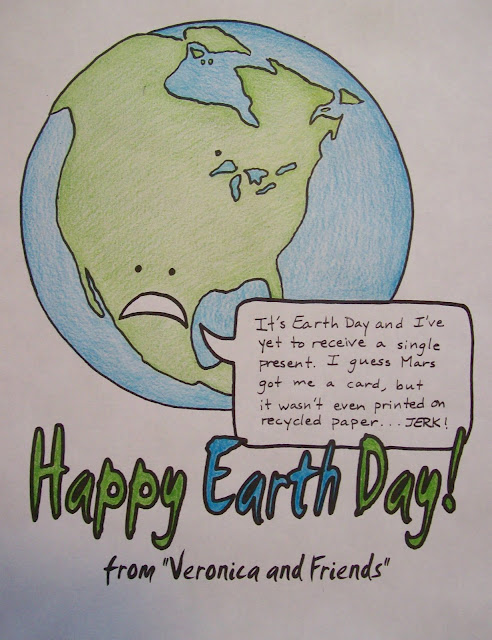 It's Earth Day and I've
yet to receive a single
present. I guess Mars
got me a card, but
it wasn't even printed on
recycled paper... JERK!
Happy Earth Day!
from "Veronica and Friends"